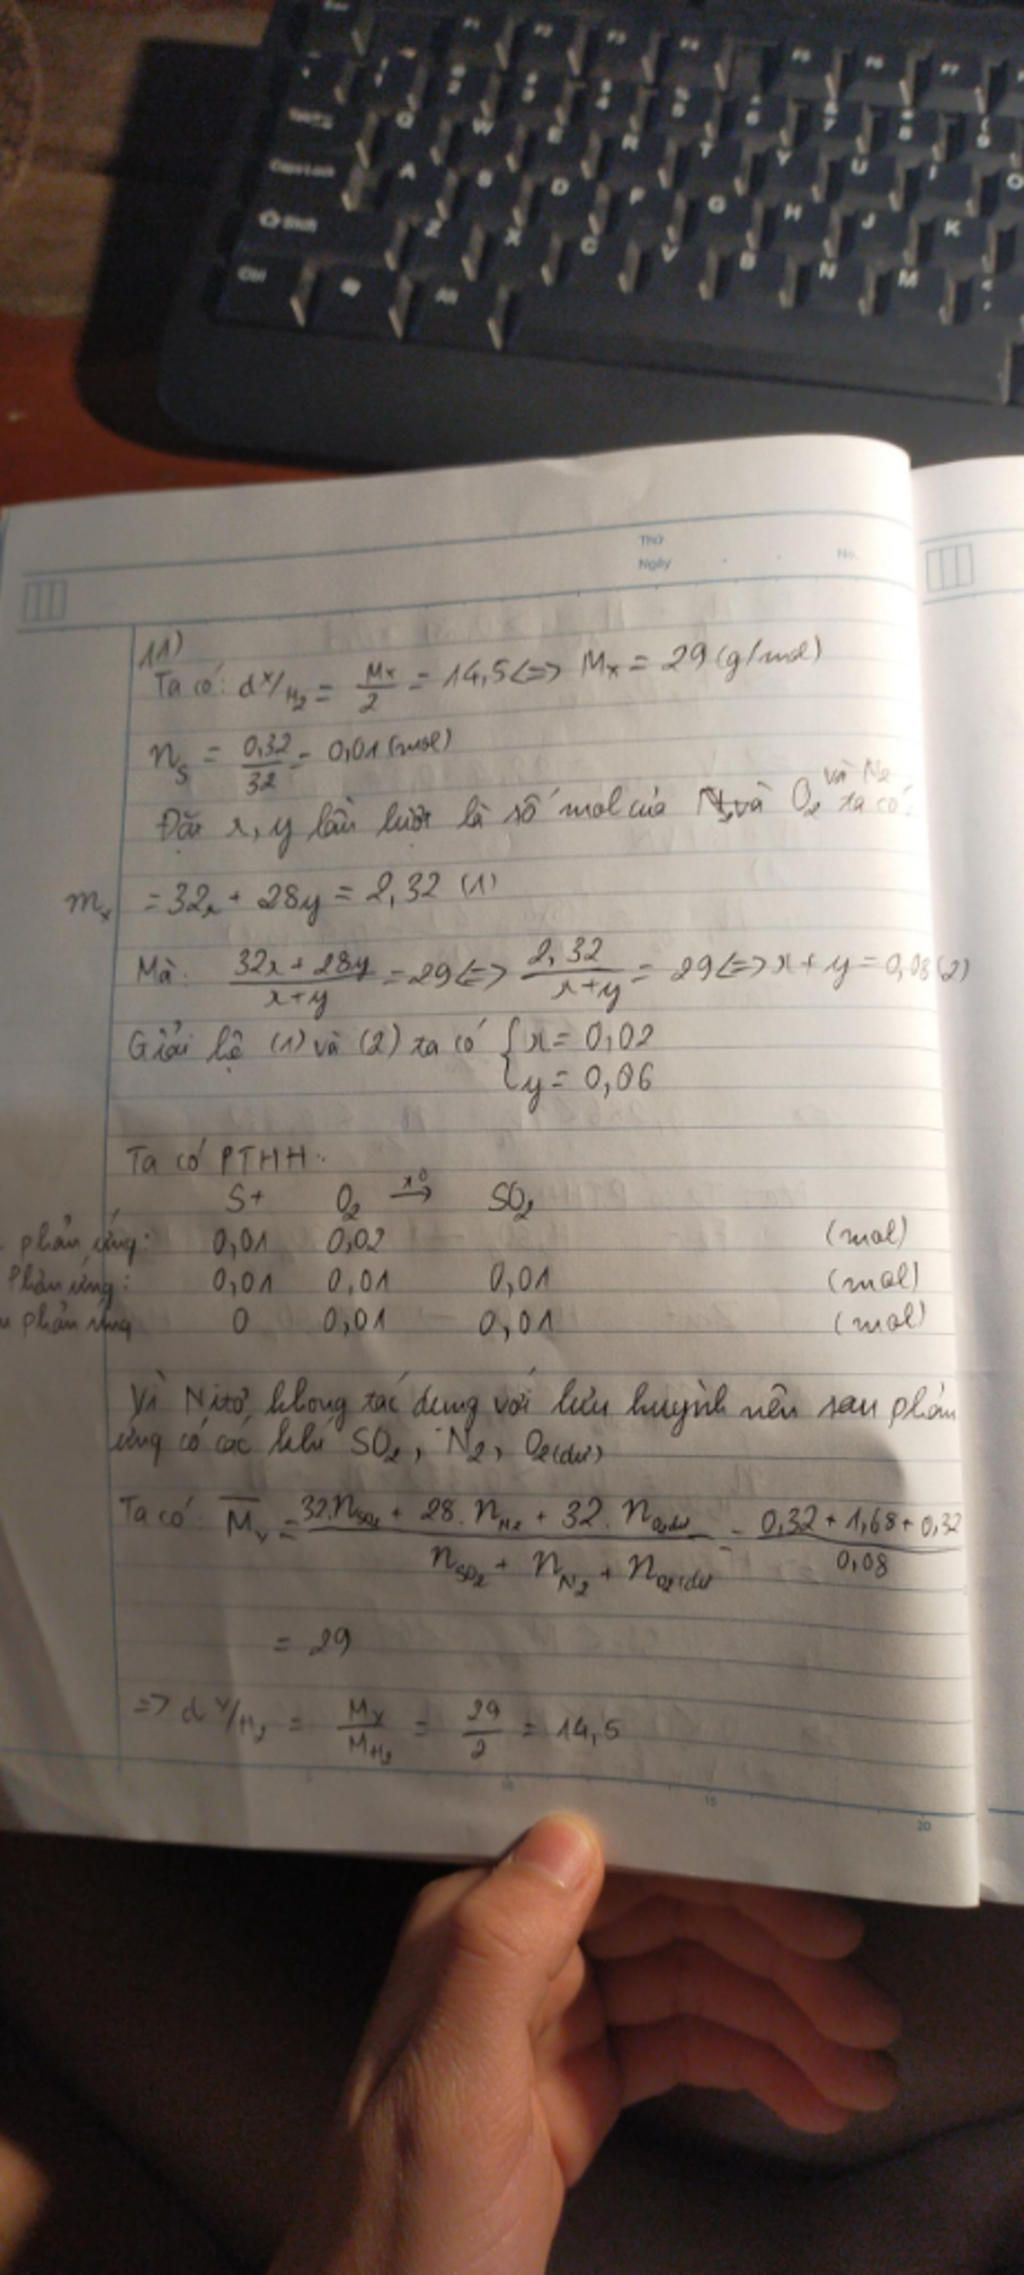 F1 F2 F3 F4 F5 F6 F7
Q W E R T Y U I O
A S D F G H J K
Shift Z X C V B N M
Ctrl Alt
Thứ
Ngày No.
11)
Ta có: d X/H2 = Mx/2 = 14,5 <=> Mx = 29 (g/mol)
nS = 0,32/32 = 0,01 (mol)
và N2
Đặt x, y lần lượt là số mol của O2 ta có:
mx = 32x + 28y = 2,32 (1)
Mà: (32x + 28y)/(x+y) = 29 <=> 2,32/(x+y) = 29 <=> x + y = 0,08 (2)
Giải hệ (1) và (2) ta có { x = 0,02
y = 0,06
Ta có PTHH:
S + O2 -t°-> SO2
phản ứng: 0,01 0,02 (mol)
Phản ứng: 0,01 0,01 0,01 (mol)
phản ứng 0 0,01 0,01 (mol)
Vì Nitơ không tác dụng với lưu huỳnh nên sau phản
ứng có các khí SO2, N2, O2(dư)
Ta có: My = (32.nSO2 + 28.nN2 + 32.nO2dư)/(nSO2 + nN2 + nO2(dư)) = (0,32 + 1,68 + 0,32)/0,08
= 29
=> d Y/H2 = My/MH2 = 29/2 = 14,5
5 10 15 20